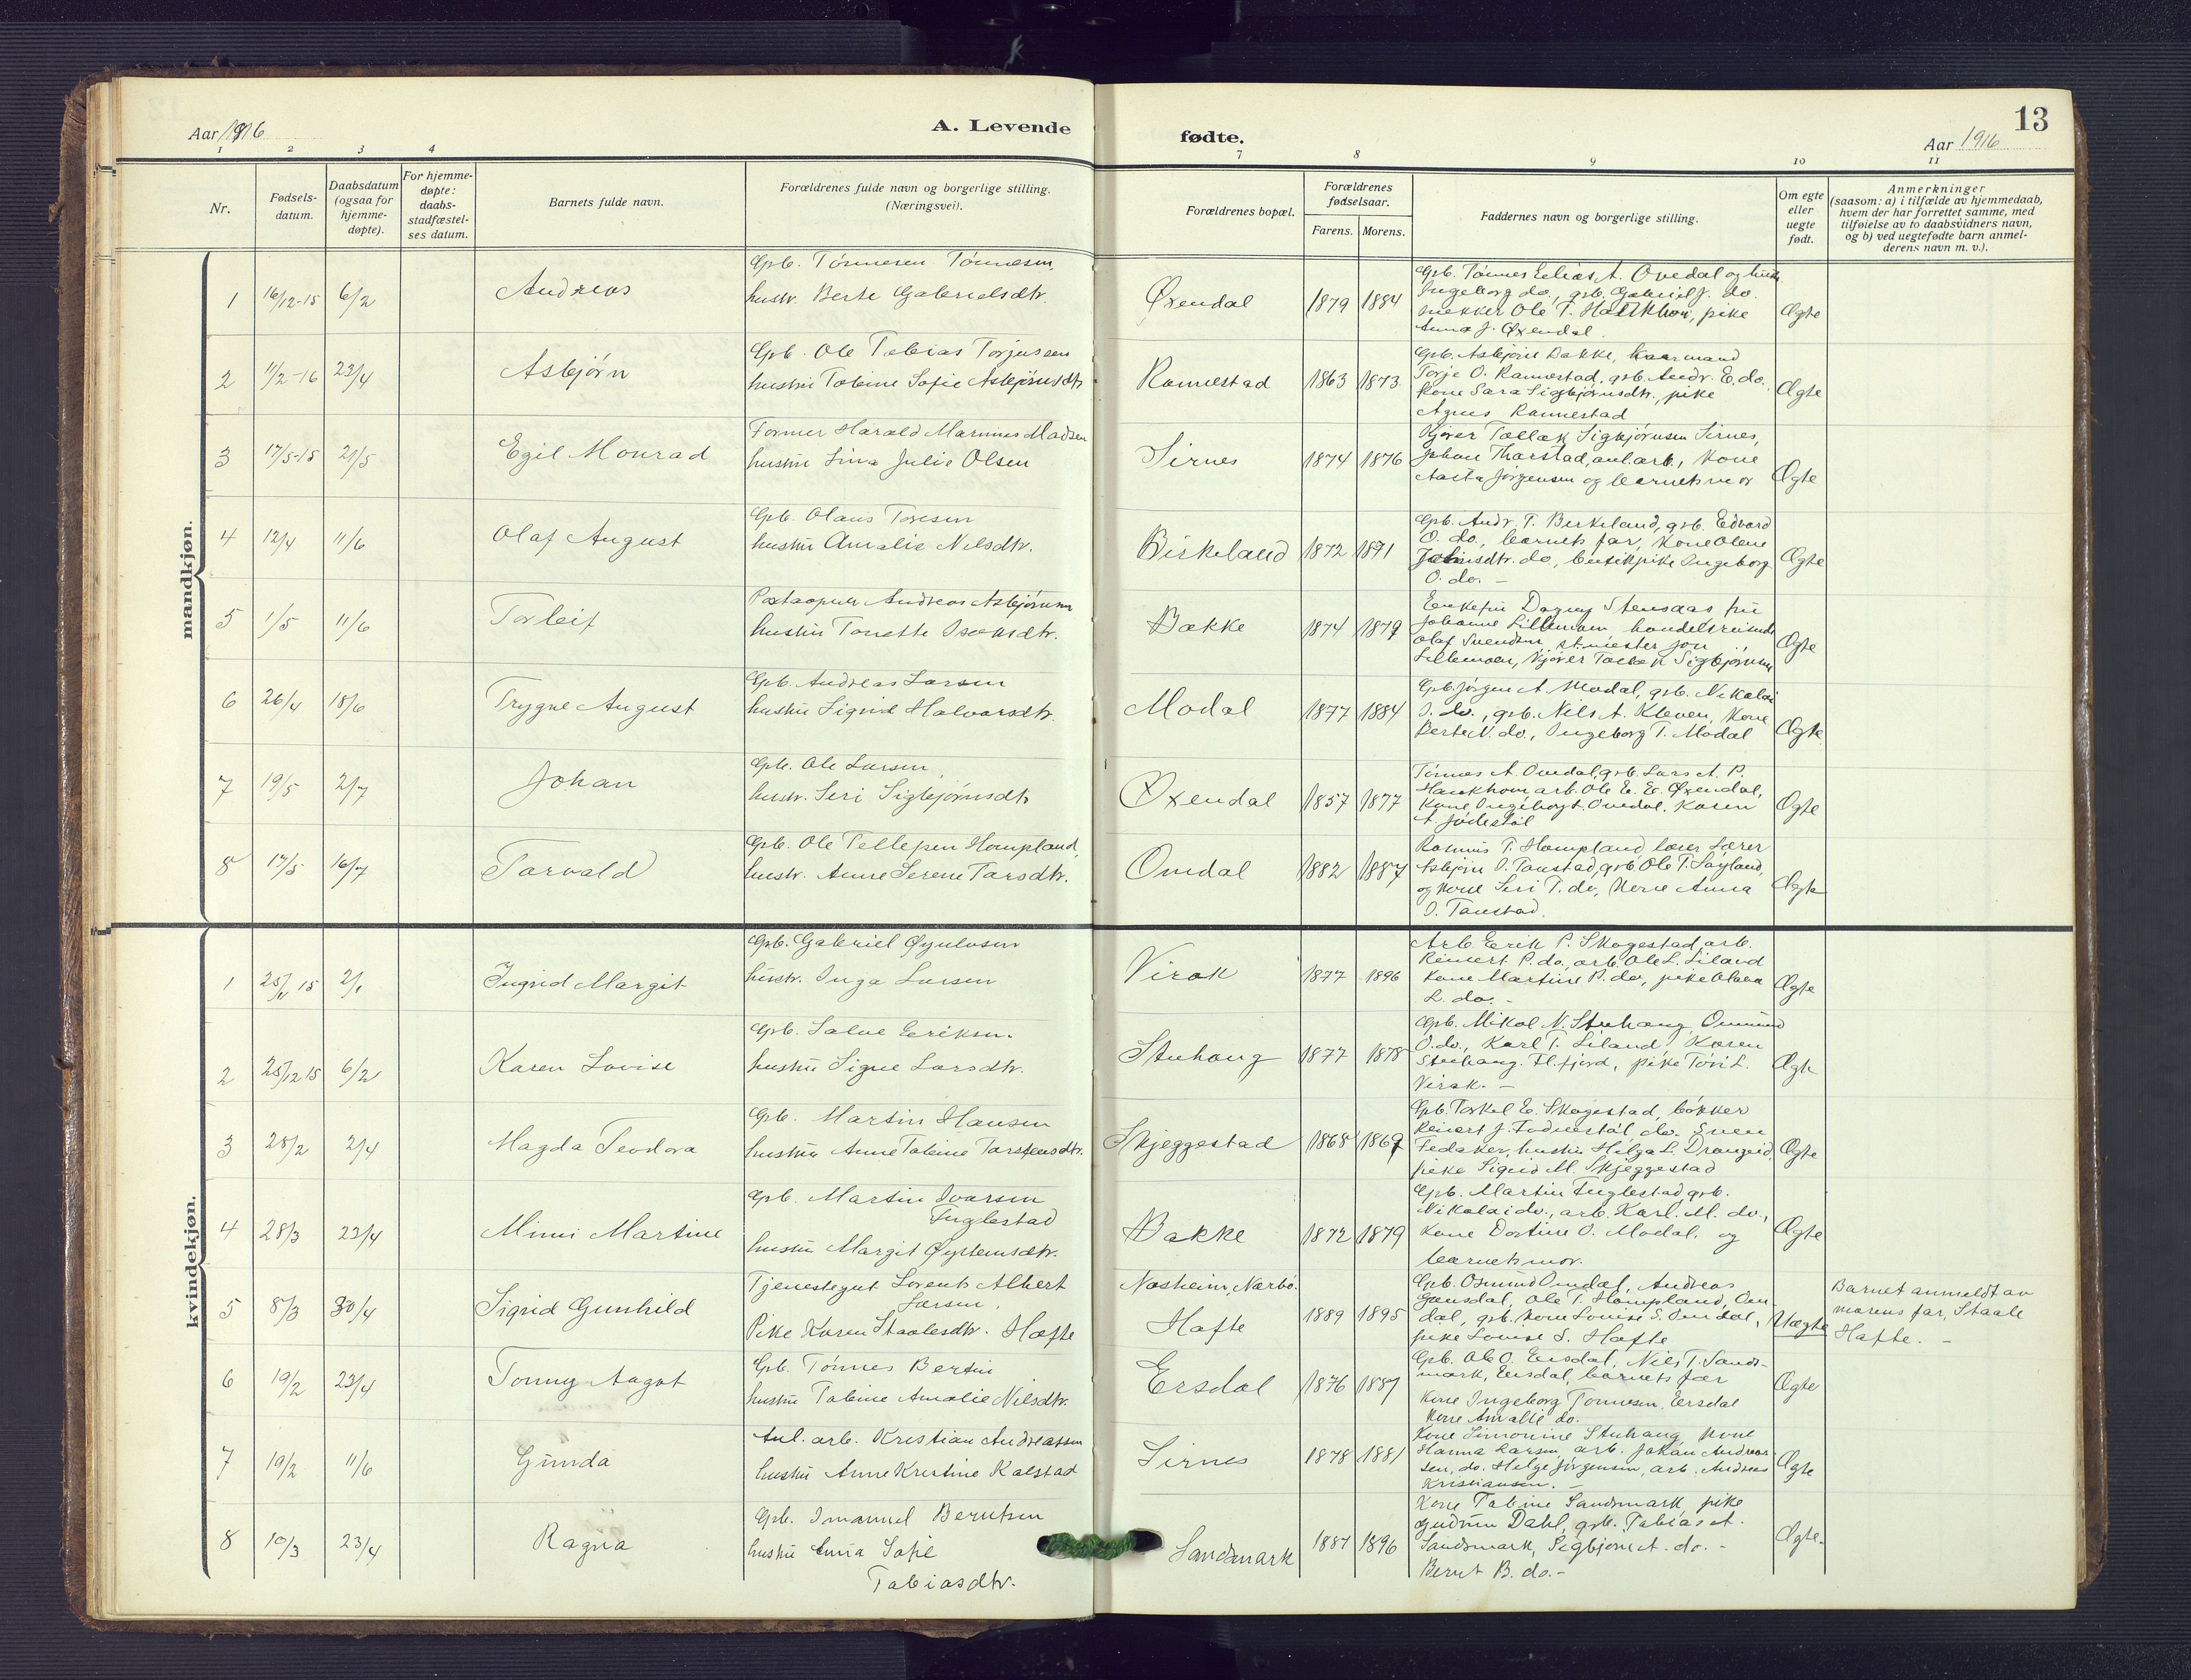 Aar 1916
A. Levende
fødte.
13
Aar 1916
1 2 3 4 7 8 9 10 11
Nr.
Fødsels-
datum.
Daabsdatum
(ogsaa for
hjemme-
døpte).
For hjemme-
døpte:
daabs-
stadfæstel-
ses datum.
Barnets fulde navn.
Forældrenes fulde navn og borgerlige stilling.
(Næringsvei).
Forældrenes bopæl.
Forældrenes
fødselsaar.
Farens. Morens.
Faddernes navn og borgerlige stilling.
Om egte
eller
uegte
født.
Anmerkninger
(saasom: a) i tilfælde av hjemmedaab,
hvem der har forrettet samme, med
tilføielse av to daabsvidners navn,
og b) ved uegtefødte barn anmel-
derens navn m. v.).
mandkjøn.
1 16/12-15 6/2 Andreas
Gpb. Tönnesen Tönnesen,
hustr. Berte Gabrielsdtr.
Øxendal 1879 1884
Gpb. Tönnes Elias A. Ovedal og
Ingeborg do., grb. Gabriel J. do.
snekker Ole T. pike
Anna J. Øxendal
Ægte
2 11/2-16 23/4 Asbjörn
Gpb. Ole Tobias Torjussen
hustru Tobine Sofie Asbjörnsdtr
Rannestad 1863 1873
Gpb. Asbjörn Bakke, kaarmand
Torje O. Rannestad, grb. Andr. E. do.
Kone Sara Sigbjörnsdtr., pike
Agnes Rannestad
Ægte
3 17/5-15 21/5 Egil Monrad
Former Harald Marinius Madsen
hustru Lina Julie Olsen
Sirnes 1874 1876
Kjörer Tallak Sigbjörnsen Sirnes,
Johan Tharstad, anl.arb., Kone
Aasta Jörgensen og barnets mor
Ægte
4 12/4 11/6 Olaf August
Gpb. Olaus Toresen
hustru Amalie Nilsdtr.
Birkeland 1872 1871
Gpb. Andr. T. Birkeland, grb. Edvard
O. do., barnets far, Kone Olene
do, butikpike Ingeborg
O. do. -
Ægte
5 1/5 11/6 Torleif
Andreas Asbjörnsen
hustru Tonette Isaksdtr.
Bakke 1874 1879
Enkefru Dagny Stensaas fru
Johanne Lillemoen handelsreisende
Olaf Svendsen, st.mester Jon
Lillemoen, Kjörer Tallak Sigbjörnsen
Ægte
6 26/4 18/6 Trygve August
Gpb. Andreas Larsen
hustru Sigrid Halvorsdtr.
Modal 1877 1884
Gpb. Jörgen A. Modal, grb. Nikolai
I. do., grb. Nils A. Kleven, Kone
Berte N. do., Ingeborg T. Modal
Ægte
7 19/5 2/7 Johan
Gpb. Ole Larsen,
hustr. Seri Sigbjörnsdtr
Øxendal 1857 1877
Tönnes A. Ovedal, grb. Lars A. P.
arb. Ole E. E. Øxendal,
Kone Ingeborg Ovedal, Karen
A.
Ægte
8 17/5 16/7 Torvald
Gpb. Ole Tellefsen Hompland,
hustr. Anne Serene Tarsdtr.
Omdal 1882 1887
Rasmus T. Hompland Lærer
Asbjörn O. Tonstad, grb. Ole T.
og kone Seri T. do, Kone Anna
O. Tonstad.
Ægte
kvindekjøn.
1 25/11 15 2/1 Ingrid Margit
Gpb. Gabriel Øyulvsen
hustr. Inga Larsen
Virak 1877 1896
Arb. Eerik P. Skogestad, arb.
Reinert P. do, arb. Ole L. Liland
Kone Martine P. do, pike Olava
L. do. -
Ægte
2 25/12 15 6/2 Karen Lovise
Gpb. Salve Eeriksen.
hustru Signe Larsdtr.
Stuhaug 1877 1878
Gpb. Mikal N. Stuhaug, Ommund
O. do., Karl T. Liland, Karen
Stuhaug. Fl.fjord, pike Töri L.
Virak. -
Ægte
3 28/2 2/4 Magda Teodora
Gpb. Martin Hansen
hustru Anne Tobine Torstensdtr.
Skjeggestad 1868 1869
Gpb. Torkel E. Skogestad, bökker
Reinert J. do. Sven
Fedaker, hustru Helga L. Drangeid,
pike Sigrid M. Skjeggestad
Ægte
4 28/3 23/4 Mimi Martine
Gpb. Martin Ivarsen
Fuglestad
hustru Margit Øysteinsdtr.
Bakke 1872 1879
Gpb. Martin Fuglestad, grb.
Nikolai do., arb. Karl. M. do.,
Kone Dortine O. Modal, og
barnets mor.
Ægte
5 8/3 30/4 Sigrid Gunhild
Tjenestegut Lorents Albert
Larsen,
Pike Karen Staalesdtr. Hafte
Nærbö.
Hafte 1889 1895
Gpb. Osmund Omdal, Andreas
Ole T. Hompland, Om-
dal, grb. Kone Lovise S. Omdal,
pike Lovise S. Hafte
Uægte
Barnet anmeldt av
morens far, Staale
Hafte. -
6 19/2 23/4 Tonny Aagot
Gpb. Tönnes Bertin
hustru Tobine Amalie Nilsdtr.
Eersdal 1876 1887
Gpb. Ole O. Eersdal, Nils T. Sands-
mark, Eersdal, barnets far
Kone Ingeborg Tönnesen, Eersdal
Kone Amalie do.
Ægte
7 19/2 11/6 Gunda
Anl. arb. Kristian Andreassen
hustru Anne Kristine Kalstad
Sirnes 1878 1881
Kone Simonine Stuhaug, Kone
Hanna Larsen, arb. Johan Andreas-
sen, do. Helge Jörgensen, arb. Andreas
Kristiansen. -
Ægte
8 10/3 23/4 Ragna
Gpb. Imanuel Berntsen
hustru Enia Sofie
Tobiasdtr.
Sandsmark 1887 1896
Kone Tobine Sandsmark, pike
Gudrun Dahl, grb. Tobias A.
Sandsmark, Sigbjörn A. do. -
Bernt B. do. -
Ægte.